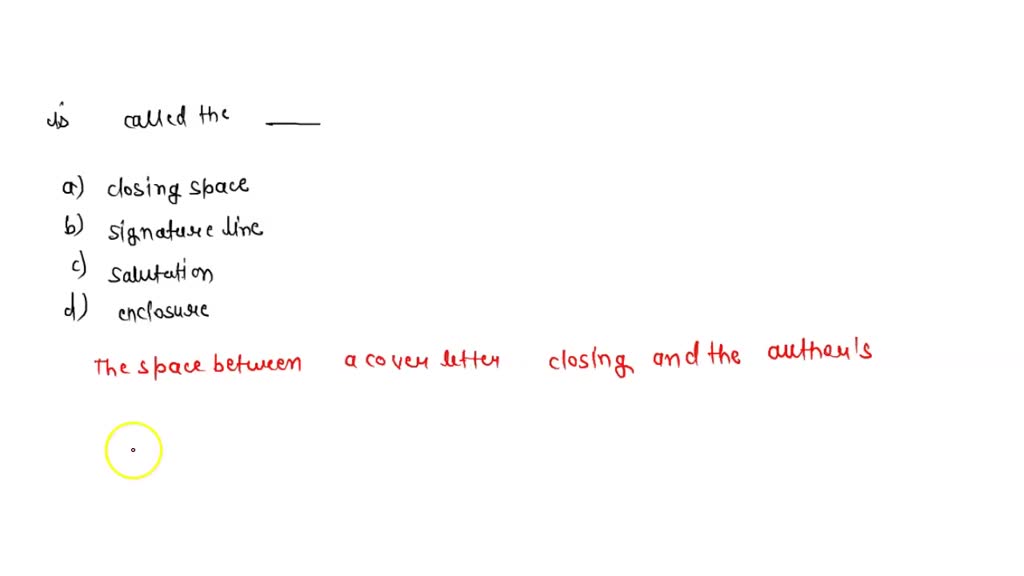 is called the ___
a) closing space
b) signature line
c) salutation
d) enclosure
The space between a cover letter closing and the author's